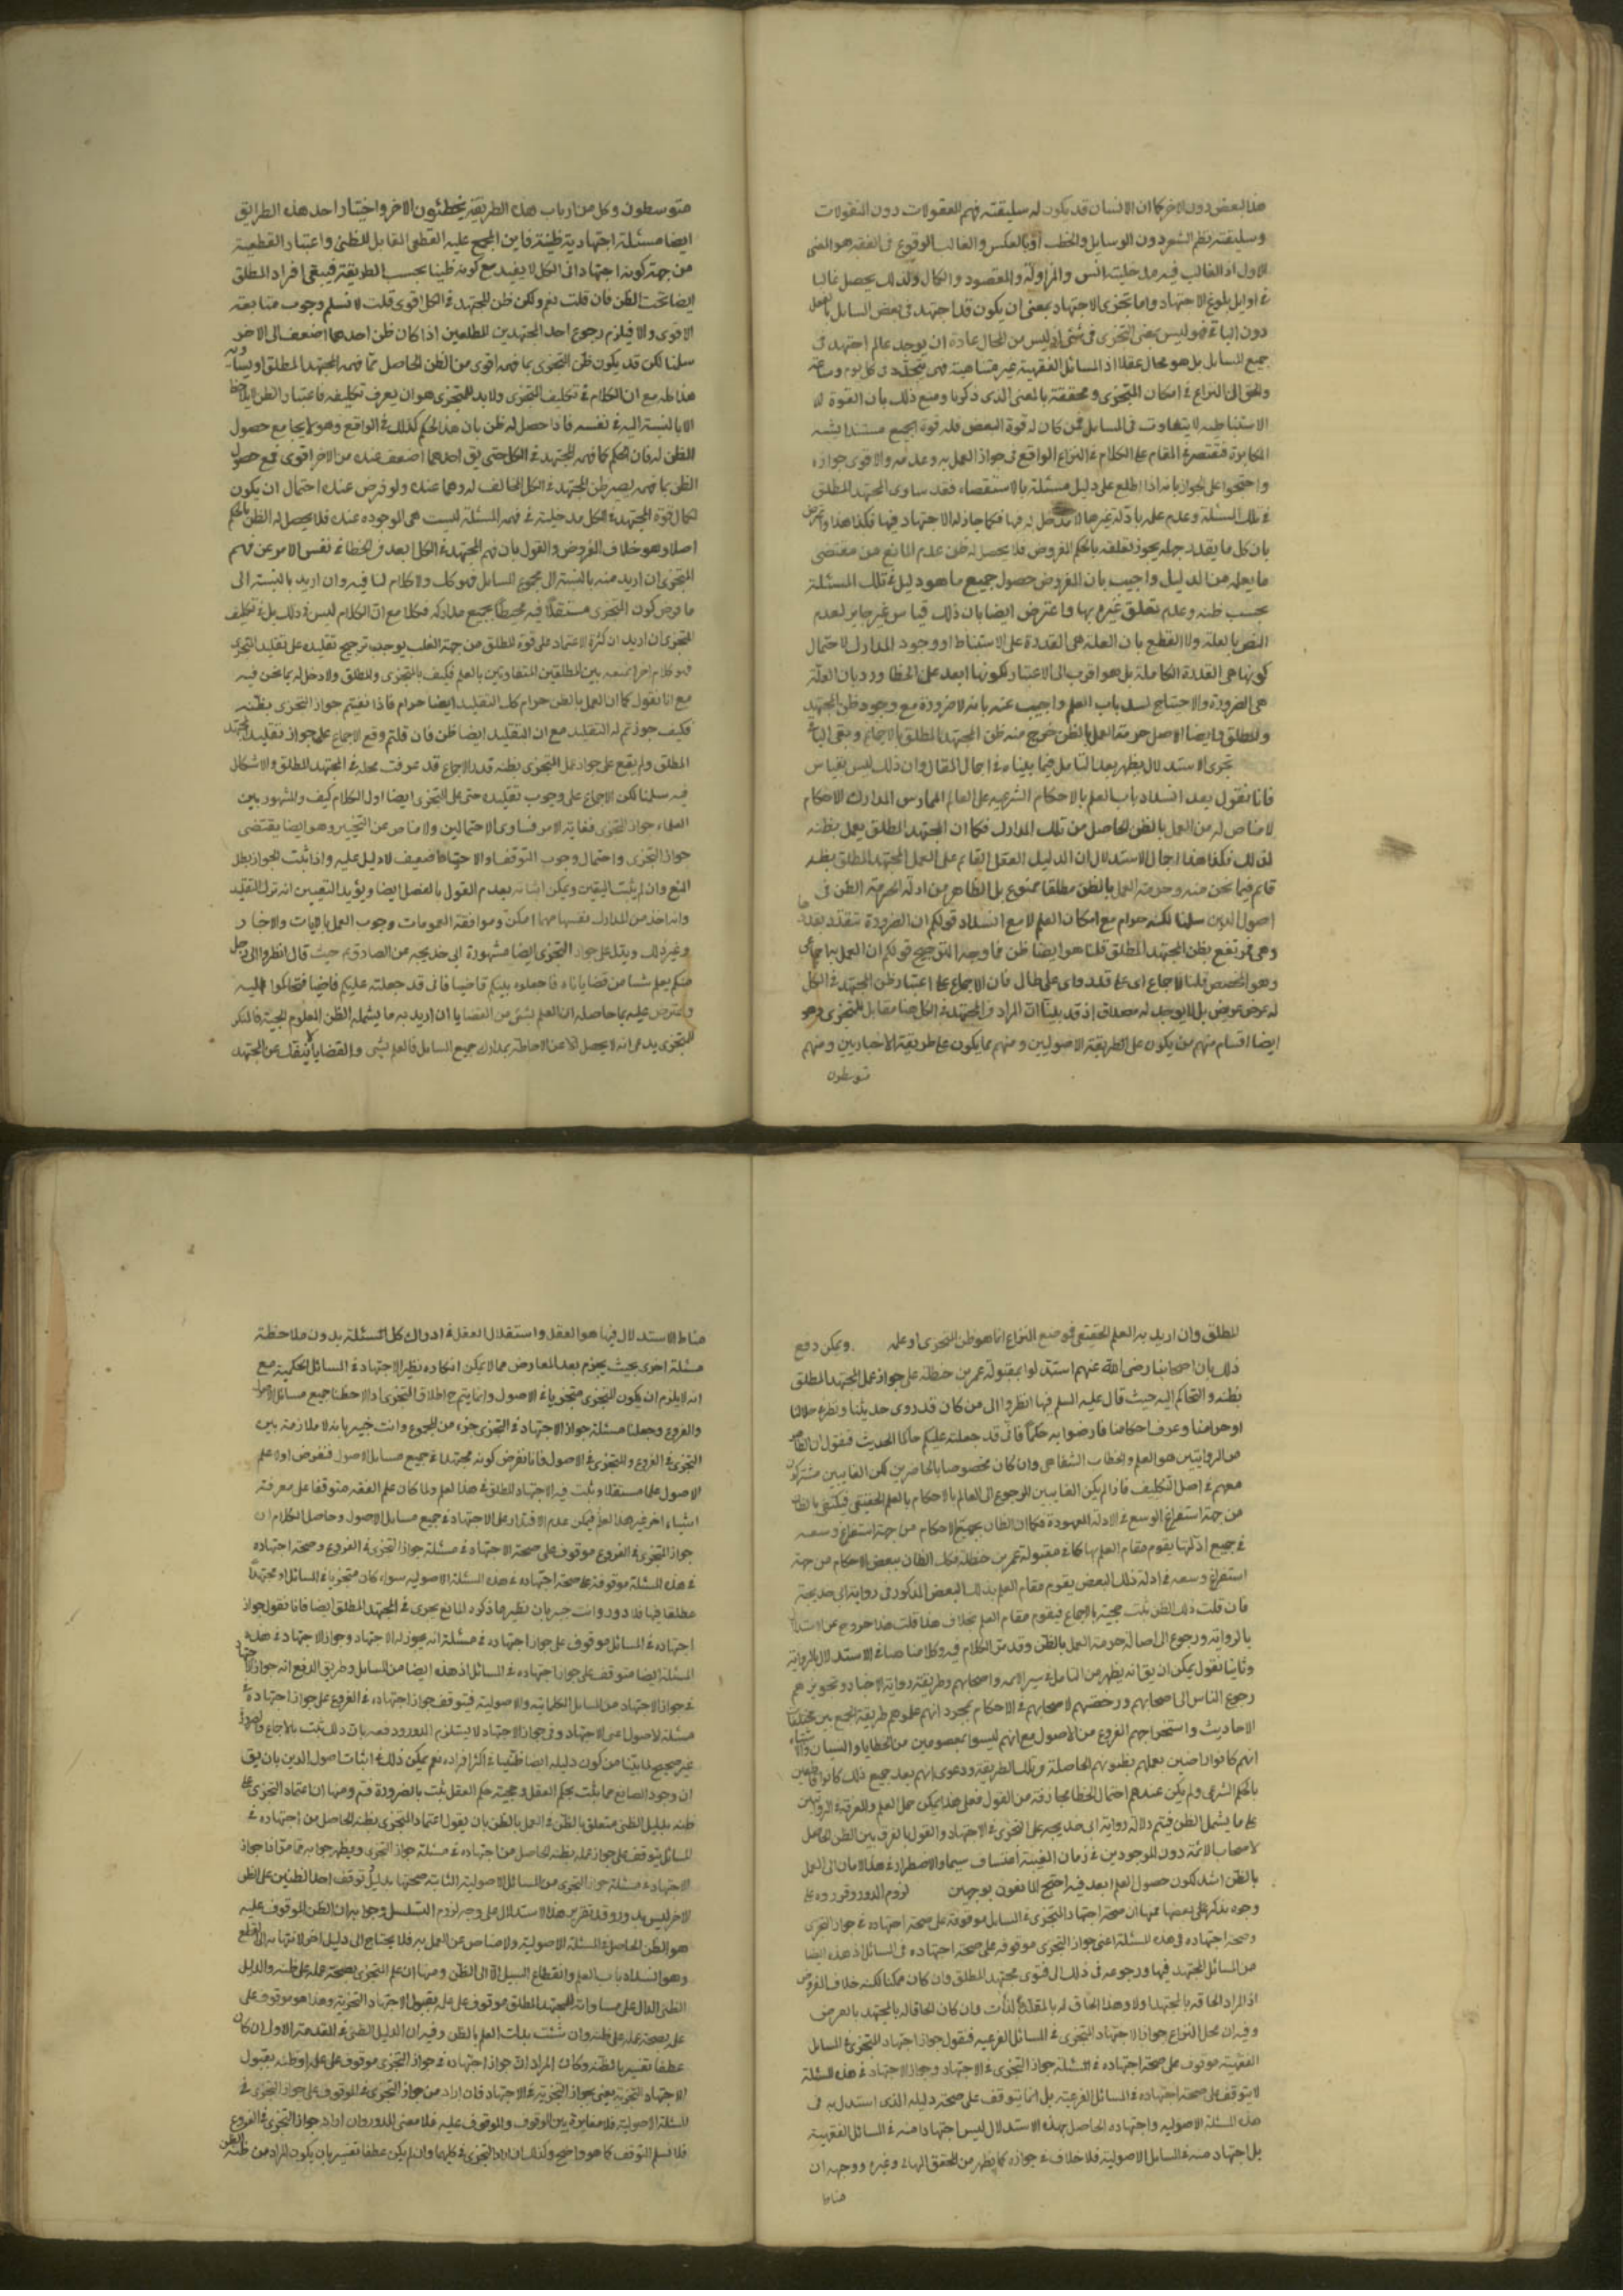 هذا البعض دون الاخر كما ان الانسان قد يكون له سليقته فهم المعقولات دون المنقولات
وسليقته نظم الشعر دون الرسايل والخطب او بالعكس والغالب الوقوع فى الفقه هو المعنى
الاول اذ الغالب فيه مدخلية الانس والمزاولة والمقصود والكمال ولذلك يحصل غالبا
فى اوايل بلوغ الاجتهاد واما تجزى الاجتهاد بمعنى ان يكون قد اجتهد فى بعض المسايل بالفعل
دون الباقى فهو ليس بمعنى التجزى فى شئ اذ ليس من المحال عادة ان يوجد عالم اجتهد فى
جميع المسايل بل هو محال عقلا اذ المسائل الفقهية غير متناهية فهى تتجدد فى كل يوم وساعة
والحق ان النزاع فى امكان التجزى ومحققته بالمعنى الذى ذكرنا ومنع ذلك بان القوة
الاستنباطية لا يتفاوت فى المسايل فمن كان له قوة البعض فله قوة الجميع مستندا يشبه
المكابرة فنقتصر فى المقام على الكلام فى النزاع الواقع فى جواز العمل به وعدمه والاقوى جوازه
واحتجوا على الجواز بانه اذا اطلع على دليل مسئلة بالاستقصاء فقد ساوى المجتهد المطلق
فى تلك المسئلة وعدم علمه بادلة غيرها لا مدخل له فيها فكما جاز له الاجتهاد فيها فكذا هذا واعترض
بان كل ما يقدر جهله يجوز تعلقه بالحكم المفروض فلا يحصل له ظن عدم المانع من مقتضى
ما يعلمه من الدليل واجيب بان المفروض حصول جميع ما هو دليل فى تلك المسئلة
بحسب ظنه وعدم تعلق غيره بها واعترض ايضا بان ذلك قياس غير جايز لعدم
النص بالعلة ولا القطع بان العلة هى القدرة على الاستنباط او وجود المدارك لاحتمال
كونها هى القدرة الكاملة بل هو اقرب الى الاعتبار لكونها ابعد على الخطا ورد بان العلة
هى الضرورة والاحتياج لسد باب العلم واجيب عنه بانه لا ضرورة مع وجود ظن المجتهد
المطلق وايضا الاصل حرمة العمل بالظن خرج منه ظن المجتهد المطلق بالاجماع وبقى الباقى
تجرى الاستدلال يظهر بعد التامل فيما بيناه فى اجمال المقال وان ذلك ليس بقياس
فانا نقول بعد انسداد باب العلم بالاحكام الشرعيه على العالم الممارس المدارك الاحكام
لا مناص له من العمل بالظن الحاصل من تلك المدارك فكما ان المجتهد المطلق يعمل بظنه
لذلك فكذا هذا اجمال الاستدلال ان الدليل العقل القائم على العمل المجتهد المطلق بظنه
قائم فيما نحن فيه وحرمة العمل بالظن مطلقا ممنوع بل الظاهر من ادلة الحرمة الظن فى
اصول الدين سلمنا لكنه حرام مع امكان العلم لا مع انسداد قولكم ان الضرورة تتقدر بقدرها
وهى ترتفع بظن المجتهد المطلق قلنا هو ايضا ظن فما وجه الترجيح قولكم ان العمل به اجماعى
وهو المخصص قلنا الاجماع اى على قدر واى على حال فان الاجماع على اعتبار ظن المجتهد فى الكل
له عرض عريض بل لا يوجد له مصداق اذ قد بينا ان المراد فى المجتهد فى الكل هنا مقابل للمتجزى وهو
ايضا اقسام منهم من يكون على الطريقة الاصوليين ومنهم ما يكون على طريقة الاخباريين ومنهم
متوسطون
متوسطون وكل من ارباب هذه الطريقه يخطئون الاخر واختيار احد هذه الطرايق
ايضا مسئلة اجتهادية ظنية فاين المجمع عليه القطعى المقابل للظنى واعتبار القطعية
من جهة كونه اجتهادا فى الكل لا يفيد مع كونه ظنيا بحسب الطريقة فيبقى افراد المطلق
ايضا تحت الظن فان قلت نعم ولكن ظن المجتهد فى الكل اقوى قلت لا نسلم وجوب متابعة
الاقوى والا فيلزم رجوع احد المجتهدين المطلقين اذا كان ظن احدهما اضعف الى الاخر
سلمنا لكن قد يكون ظن المتجزى بما فهمه اقوى من الظن الحاصل مما فهمه المجتهد المطلق
هذا كله مع ان الكلام فى تكليف المتجزى ولابد للمتجزى هو ان يعرف تكليفه فاعتبار الظن
الا بالنسبة اليه فى نفسه فاذا حصل له ظن بان هذا الحكم كذلك فى الواقع وهو كما يجامع حصول
الظن له فان الحكم كما فهمه المجتهد فى الكل حتى يق احدهما اضعف عنده من الاخر اقوى فمع حصول
الظن بما فهمه يصير ظن المجتهد فى الكل المخالف له وهما عنده ولو فرض عنده احتمال ان يكون
لكمال قوة المجتهد فى الكل مدخلية فى فهم المسئلة ليست هى الموجوده عنده فلا يحصل له الظن بالحكم
اصلا وهو خلاف المفروض والقول بان فهم المجتهد فى الكل ابعد من الخطا فى نفس الامر عن فهم
المتجزى ان اريد منه بالنسبة الى مجموع المسايل فهو كك ولا كلام لنا فيه وان اريد بالنسبة الى
ما فرض كون المتجزى مستقلا فيه محيطا بجميع مداركه فكلا مع ان الكلام ليس فى ذلك بل فى تكليف
المتجزى ان اريد ان كثرة الاعتماد على قوة المطلق من جهة الغلب يوجب ترجيح تقليده على تقليد المتجزى
فهو كلام اخر نمنعه بين المطلقين المتفاوتين بالعلم فكيف بالتجزى والمطلق ولا دخل له بما نحن فيه
مع انا نقول كما ان العمل بالظن حرام كك التقليد ايضا حرام فاذا نفيتم جواز التجزى بظنه
فكيف جوزتم له التقليد مع ان التقليد ايضا ظن فان قلتم وقع الاجماع على جواز تقليد المجتهد
المطلق ولم يقع على جواز عمل المتجزى بظنه قلنا الاجماع قد عرفت محله فى المجتهد المطلق والاشكال
فيه سلمنا لكن الاجماع على وجوب تقليده حتى على المتجزى ايضا اول الكلام كيف والمشهور بين
العلماء جواز التجزى فغاية الامر تساوى الاحتمالين ولا مناص عن التخيير وهو ايضا يقتضى
جواز التجزى واحتمال وجوب التوقف والاحتياط ضعيف لا دليل عليه واذا ثبت الجواز بطل
المنع وان لم يثبت اليقين ويمكن اثباته بعدم القول بالفصل ايضا ويؤيد التعيين انه ترك التقليد
وانه اخذ من المدارك نفسها مهما امكن وموافقة العمومات وجوب العمل بالايات والاخبار
وغير ذلك ويدل على جواز التجزى ايضا مشهورة ابى خديجه عن الصادق ع حيث قال انظروا الى رجل
منكم يعلم شيئا من قضايانا فاجعلوه بينكم قاضيا فانى قد جعلته عليكم قاضيا فتحاكموا اليه
واعترض عليه بما حاصله ان العلم بشئ من القضايا ان اريد به ما يشمله الظن المعلوم الحجية فالمنكر
للتجزى يدعى انه لا يحصل الا عن الاحاطة بمدارك جميع المسايل فالعلم بشئ من القضايا لا ينفك عن المجتهد
المطلق وان اريد به العلم الحقيقى فموضع النزاع انما هو ظن المتجزى او علمه ويمكن دفع
ذلك بان اصحابنا رضى الله عنهم استدلوا بمقبولة عمر بن حنظلة على جواز عمل المجتهد المطلق
بظنه والتحاكم اليه حيث قال عليه السلم فيها انظروا الى من كان قد روى حديثنا ونظر فى حلالنا
او حرامنا وعرف احكامنا فارضوا به حكما فانى قد جعلته عليكم حاكما الحديث فنقول ان الظاهر
من الروايتين هو العلم والخطاب الشفاهى وان كان مخصوصا بالحاضرين لكن الغايبين مشتركون
معهم فى اصل التكليف فاذا لم يكن الغايبين الرجوع الى العالم بالاحكام بالعلم الحقيقى فيكتفى بالظان
من جهة استفراغ الوسع فى الادلة المعهودة فكما ان الظان بجميع الاحكام من جهة استفراغ وسعه
فى جميع ادلتها يقوم مقام العلم بها كما فى مقبولة عمر بن حنظلة فكك الظان ببعض الاحكام من جهة
استفراغ وسعه فى ادلة ذلك البعض يقوم مقام العلم بذلك البعض المذكور فى رواية ابى خديجة
فان قلت ذلك الظن ثبت حجيته بالاجماع فيقوم مقام العلم بخلاف هذا قلت هذا خروج عن الاستدلال
بالرواية ورجوع الى اصالة حرمة العمل بالظن وقد مر الكلام فيه وكلامنا هنا فى الاستدلال بالرواية
وثانيا نقول يمكن ان يق انه يظهر من التامل فى سير الائمه واصحابهم وطريقة رواية الاخبار وتجويزهم
رجوع الناس الى اصحابهم ورخصتهم لاصحابهم فى الاحكام بمجرد انهم علموهم طريقة الجمع بين مختلفات
الاحاديث واستخراجهم الفروع من الاصول مع انهم ليسوا بمعصومين من الخطايا والنسيان والاشتباه
انهم كانوا راضين بعملهم بظنونهم الحاصلة من تلك الطريقة ودعوى انهم بعد جميع ذلك كانوا قاطعين
بالحكم الشرعى ولم يكن عندهم احتمال الخطا مجازفة من القول فعلى هذا يمكن حمل العلم والمعرفة فى الروايتين
على ما يشمل الظن فيتم دلالة رواية ابى خديجه على التجزى فى الاجتهاد والقول بالفرق بين الظن الحاصل
لاصحاب الائمة دون الموجودين فى زمان الغيبة اعتساف سيما والاضطرار فى هذا الزمان الى العمل
بالظن اشد لكون حصول العلم ابعد فيه احتج المانعون بوجهين لزوم الدور وقرروه على
وجوه نذكر هنا بعضها فمنها ان صحة اجتهاد المتجزى فى المسايل موقوفة على صحة اجتهاده فى جواز التجزى
وصحة اجتهاده فى هذه المسئلة اعنى جواز التجزى موقوفه على صحة اجتهاده فى المسائل اذ هذه ايضا
من المسائل المجتهد فيها ورجوعه فى ذلك الى فتوى مجتهد المطلق وان كان ممكنا لكنه خلاف المفروض
اذ المراد الحاقه بالمجتهد اولا وهذا الحاق له بالمقلد بالذات وان كان الحاقا له بالمجتهد بالعرض
وفيه ان محل النزاع جواز الاجتهاد التجزى فى المسائل الفرعيه فنقول جواز اجتهاد المتجزى فى المسايل
الفقهية موقوف على صحة اجتهاده فى المسئلة جواز التجزى فى الاجتهاد وجواز الاجتهاد فى هذه المسئلة
لا يتوقف على صحة اجتهاده فى المسائل الفرعية بل انما يتوقف على صحة دليله الذى استدل به فى
هذه المسئلة الاصوليه واجتهاده الحاصل بهذه الاستدلال ليس اجتهادا منه فى المسائل الفقهية
بل اجتهاد منه فى المسايل الاصولية فلا خلاف فى جوازه كما يظهر من المحقق البهائى وغيره ووجهه ان
مناط
مناط الاستدلال فيها هو العقل واستقلال العقل فى ادراك كل المسئلة بدون ملاحظة
مسئلة اخرى بحيث يجزم بعد المعارض مما لا يمكن انكاره نظير الاجتهاد فى المسائل الحكمية مع
انه لا يلزم ان يكون المتجزى متجزيا فى الاصول وانما يتم ح اطلاق التجزى اذا لاحظنا جميع مسائل الاصول
والفروع وجعلنا مسئلة جواز الاجتهاد فى التجزى جزء من المجموع وانت خبير بانه لا ملازمة بين
التجزى فى الفروع والتجزى فى الاصول فانا نفرض كونه مجتهدا فى جميع مسايل الاصول فنفرض اولا علم
الاصول علما مستقلا ويثبت فيه الاجتهاد المطلق فى هذا العلم ولما كان علم الفقه متوقفا على معرفة
اشياء اخر غير هذا العلم فيمكن عدم الاقتدار على الاجتهاد فى جميع مسايل الاصول وحاصل الكلام ان
جواز التجزى فى الفروع موقوف على صحة الاجتهاد فى مسئلة جواز التجزى فى الفروع وصحة اجتهاده
فى هذه المسئلة موقوفة على صحة اجتهاده فى هذه المسئلة الاصوليه سواء كان متجزيا فى المسائل او مجتهدا
مطلقا فيها فلا دور وانت خبير بان نظير ما ذكره المانع يجرى فى المجتهد المطلق ايضا فانا نقول جواز
اجتهاده فى المسائل موقوف على جواز اجتهاده فى مسئلة انه يجوز له الاجتهاد وجواز الاجتهاد فى هذه
المسئلة ايضا متوقف على جواز اجتهاده فى المسائل اذ هذه ايضا من المسايل وطريق الدفع انه جواز الاجتهاد
فى جواز الاجتهاد من المسايل الكلامية والاصولية فيتوقف جواز اجتهاده فى الفروع على جواز اجتهاده فى
مسئلة الاصول اعنى الاجتهاد وفى جواز الاجتهاد لا يستلزم الدور ودفعه بان ذلك ثبت بالاجماع والضرورة
غير صحيح لما بينا من كون دليله ايضا ظنيا فى اكثر افراده نعم يمكن ذلك فى اثبات اصول الدين بان يق
ان وجود الصانع مما يثبت بحكم العقل وحجية حكم العقل يثبت بالضرورة فتم ومنها ان اعتماد المتجزى على
ظنه بدليل الظنى متعلق بالظن فى العمل بالظن بان يقول اعتماد المتجزى بظنه الحاصل من اجتهاده فى
المسائل يتوقف على جواز عمله بظنه الحاصل من اجتهاده فى مسئلة جواز التجزى ويظهر جوابه مما مر اذا جواز
الاجتهاد فى مسئلة جواز التجزى من المسائل الاصولية الثابتة صحتها بدليل توقف احد الظنين على الظن
الاخر ليس بدور وقد نقرر هذا الاستدلال على وجه لزوم التسلسل وجوابه ان الظن الموقوف عليه
هو الظن الحاصل فى المسئلة الاصولية ولا مناص عن العمل به فلا يحتاج الى دليل اخر لانتهائه الى القطع
وهو انسداد باب العلم وانقطاع السبيل الا الى الظن ومنها ان علم المتجزى بصحة عمله على ظنه والدليل
الظنى الدال على مساواته للمجتهد المطلق موقوف على علمه بقبول الاجتهاد التجزية وهذا هو موقوف على
علمه بصحة عمله على ظنه وان شئت بدلت العلم بالظن وفيه ان الدليل الظنى فى المقدمة الاولى ان كان
عطفا تفسيريا لظنه وكان المراد ان جواز اجتهاده فى جواز التجزى موقوف على علمه او ظنه بقبول
الاجتهاد التجزية يعنى بجواز التجزية فى الاجتهاد فان اراد من جواز التجزى فى الموقوف على جواز التجزى فى
المسئلة الاصولية فلا مغايرة بين الموقوف والموقوف عليه فلا معنى للدور وان اراد جواز التجزى فى الفروع
فلا نسلم التوقف كما هو واضح وكذلك ان اراد التجزى فى كليهما وان لم يكن عطفا تفسيريا بان يكون المراد من ظنه الظن